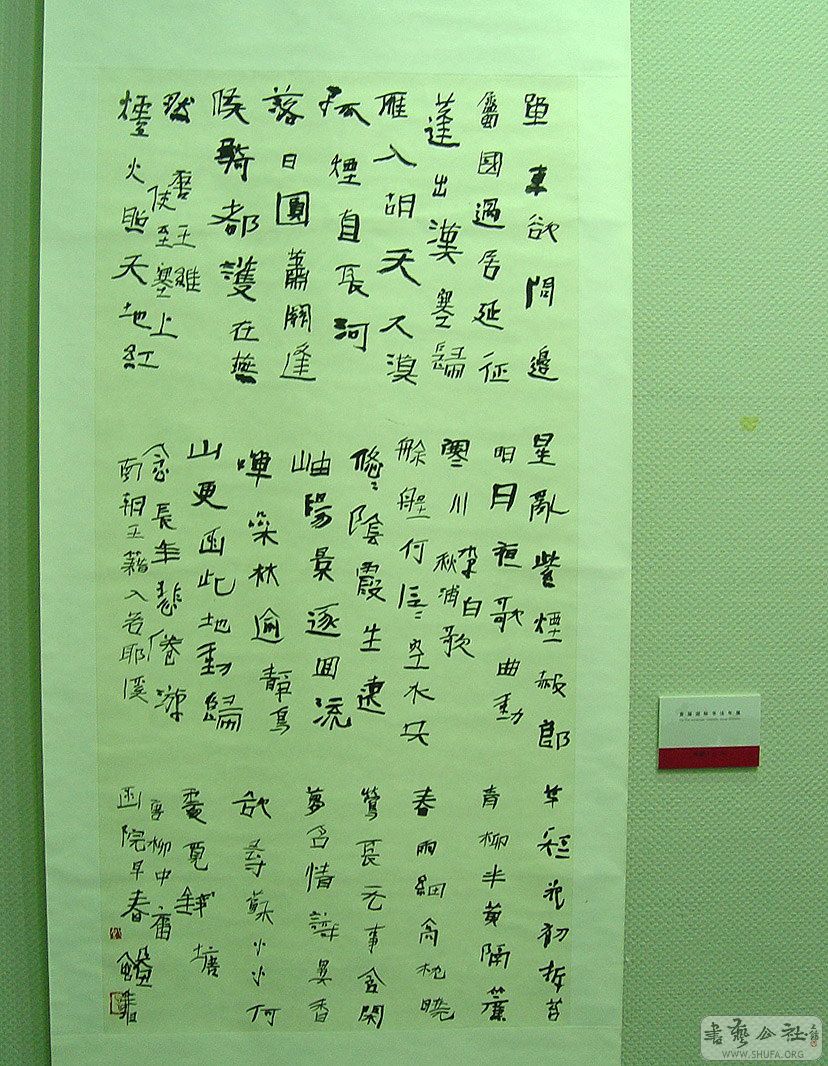 單車欲問邊
屬國過居延征
蓬出漢塞歸
雁入胡天大漠
孤煙直長河
落日圓蕭關逢
候騎都護在燕
然
唐王維
使至塞上
爐火照天地紅
星亂紫煙赧郎
明月夜歌曲動
寒川
李白
秋浦歌
艅艎何泛泛空水共
悠悠陰霞生遠
岫陽景逐回流
蟬噪林逾靜鳥
山更幽此地動歸
念長年悲倦游
南朝王籍入若耶溪
草短花初拆苔
青柳半黃隔簾
春雨細高枕曉
鶯長无事含閑
夢多情識異香
欲尋蘇小小何
處覓錢塘
唐柳中庸
幽院早春
書藝公社
WWW.SHUFA.ORG